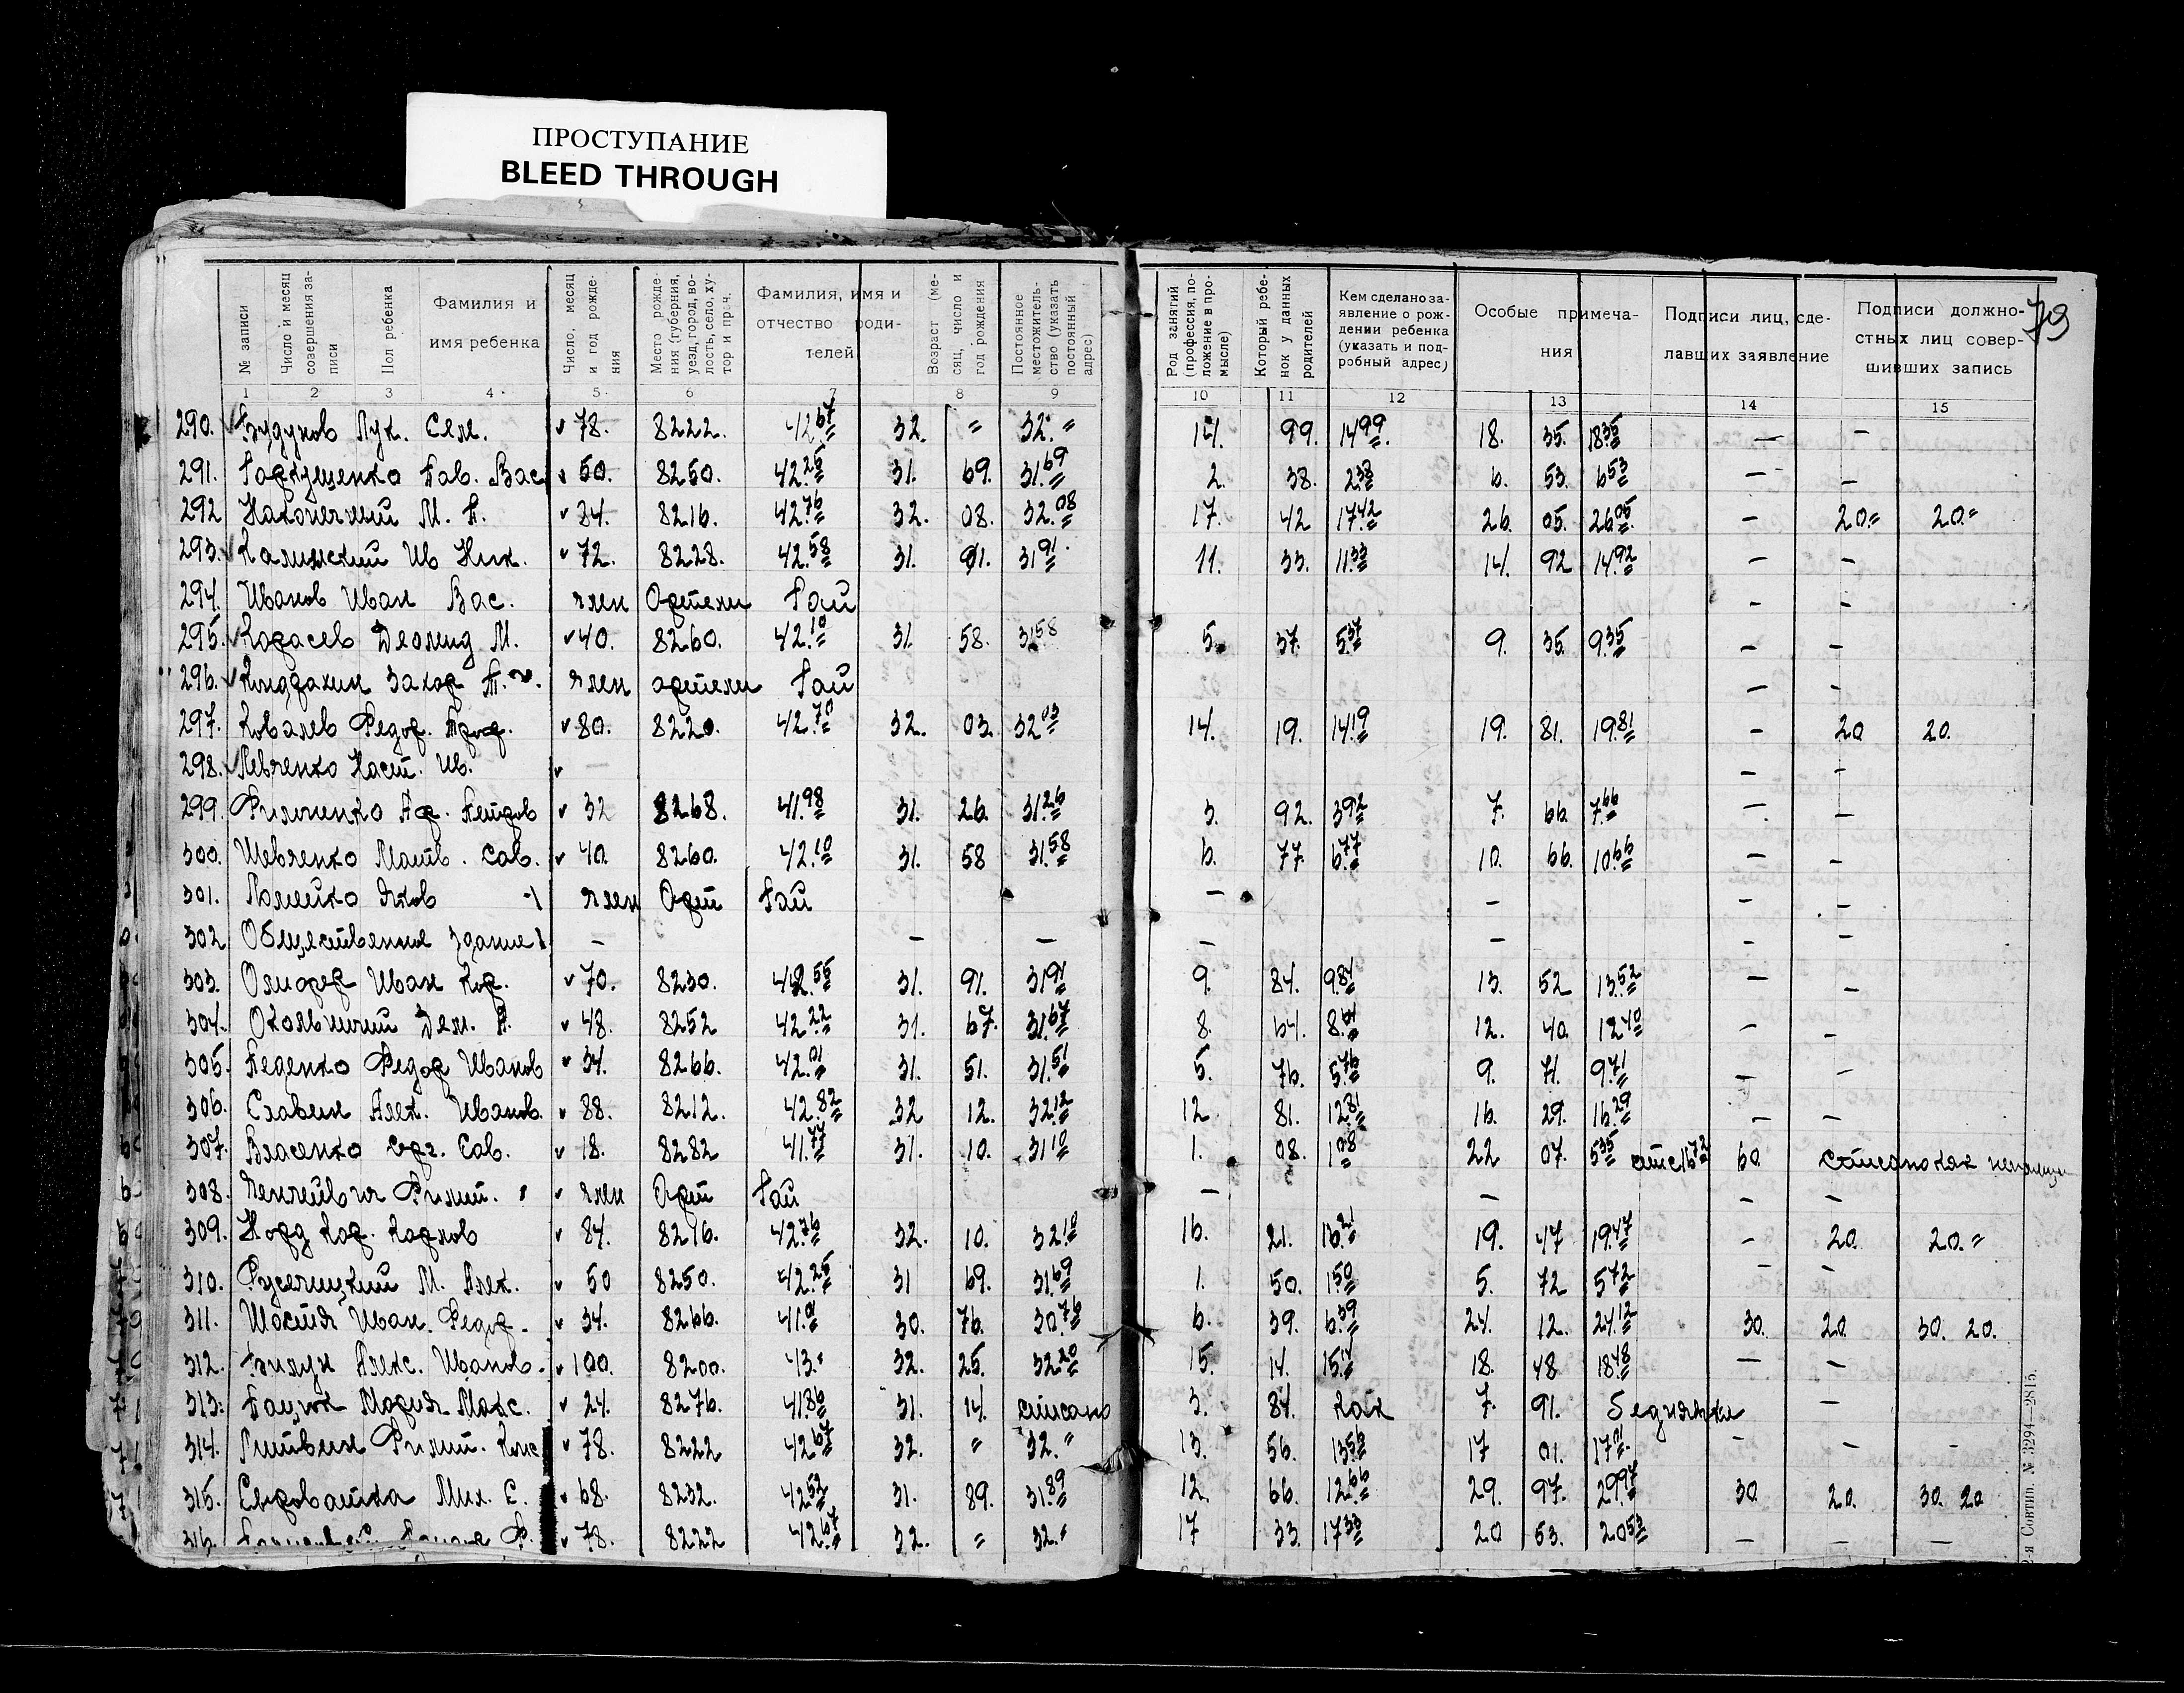 ПРОСТУПАНИЕ
BLEED THROUGH
79
№ записи
Число и месяц совершения записи
Пол ребенка
Фамилия и имя ребенка
Число, месяц и год рождения
Место рождения (губерния, уезд, город, волость, село, хутор и пр.ч.
Фамилия, имя и отчество родителей
Возраст (месяц, число и год рождения
Постоянное местожительство (указать постоянный адрес)
Род занятий (профессия, положение в промысле)
Который ребенок у данных родителей
Кем сделано заявление о рождении ребенка (указать и подробный адрес)
Особые примечания
Подписи лиц, сделавших заявление
Подписи должностных лиц совершивших запись
1 2 3 4 5 6 7 8 9 10 11 12 13 14 15
290. Лук. Сем. 78. 8222. 42.67 32. " 32. " 14. 99. 14.99 18. 35. 18.35 — —
291. Вас. 50. 8250. 42.25 31. 69. 31.69 2. 38. 2.38 6. 53. 6.53 — —
292 Наконечный М. П. 84. 8216. 42.76 32. 08. 32.08 17. 42 17.42 26. 05. 26.05 — 20. = 20. =
293. Калинский Ив Ник. 72. 8228. 42.58 31. 91. 31.91 11. 33. 11.33 14. 92 14.92 — —
294. Иванов Иван Вас. член Артели Гай — —
295. Карасев Деомид М. 40. 8260. 42.10 31. 58. 31.58 5. 37. 5.37 9. 35. 9.35 — —
296. Захар член артели Гай — —
297. Ковалев Федор. 80. 8220. 42.70 32. 03. 32.03 14. 19. 14.19 19. 81. 19.81 — 20 20.
298. Левченко Наст. Ив. — — —
299. Филипенко Петров 32 8268. 41.98 31. 26. 31.26 3. 92. 3.92 7. 66. 7.66 — —
300. Шевченко Матв. Сав. 40. 8260. 42.10 31. 58 31.58 6. 77. 6.77 10. 66. 10.66 — —
301. Яков член Арт Гай — — — —
302 Общественное здание — — — — — — —
303. Иван Кор. 70. 8230. 42.55 31. 91. 31.91 9. 84. 9.84 13. 52 13.52 — —
304. Дем. 48. 8252 42.22 31. 67. 31.67 8. 64. 8.64 12. 40. 12.40 — —
305. Педенко Федор Иванов 34. 8266. 42.01 31. 51. 31.51 5. 76. 5.76 9. 71. 9.71 — —
306. Славин Алек. Иванов. 88. 8212. 42.82 32 12. 32.12 12 81. 12.81 16. 29. 16.29 — —
307. Власенко Сав. 18. 8282 41.77 31. 10. 31.10 1. 08. 1.08 22 07. 5.35 16.72 60. Списано как
308. Филип. член Арт Гай — — — —
309. Норд Кар. Карлов 84. 8216. 42.76 32. 10. 32.10 16. 21. 16.21 19. 47 19.47 — 20. 20. =
310. М. Алек. 50 8250. 42.25 31 69. 31.69 1. 50. 1.50 5. 72 5.72 — —
311. Шостя Иван. Федор. 34. 8266. 30. 76. 30.76 6. 39. 6.39 24. 12. 24.12 30. 20. 30. 20.
312. Билун Алекс. Иванов. 100. 8200. 32. 25. 15. 14. 15.14 18. 48 18.48 — —
313. Мария Макс. 24. 8276. 41.86 31. 14. списано 3. 84. как 7. 91. беднячки —
314. Литвин Филип. 78. 8222 42.67 32. " 32. " 13. 56. 13.56 17 01. 17.01 — — —
315. Сыроватка Мих. С. 68. 8232. 42.52 31. 89. 31.89 12. 66. 12.66 29. 97. 29.97 30. 20. 30. 20
316. 78. 8222 42.67 32. " 32. " 17 33. 17.33 20 53. 20.53 — — —
2-я Совтип. № 3294—2815.